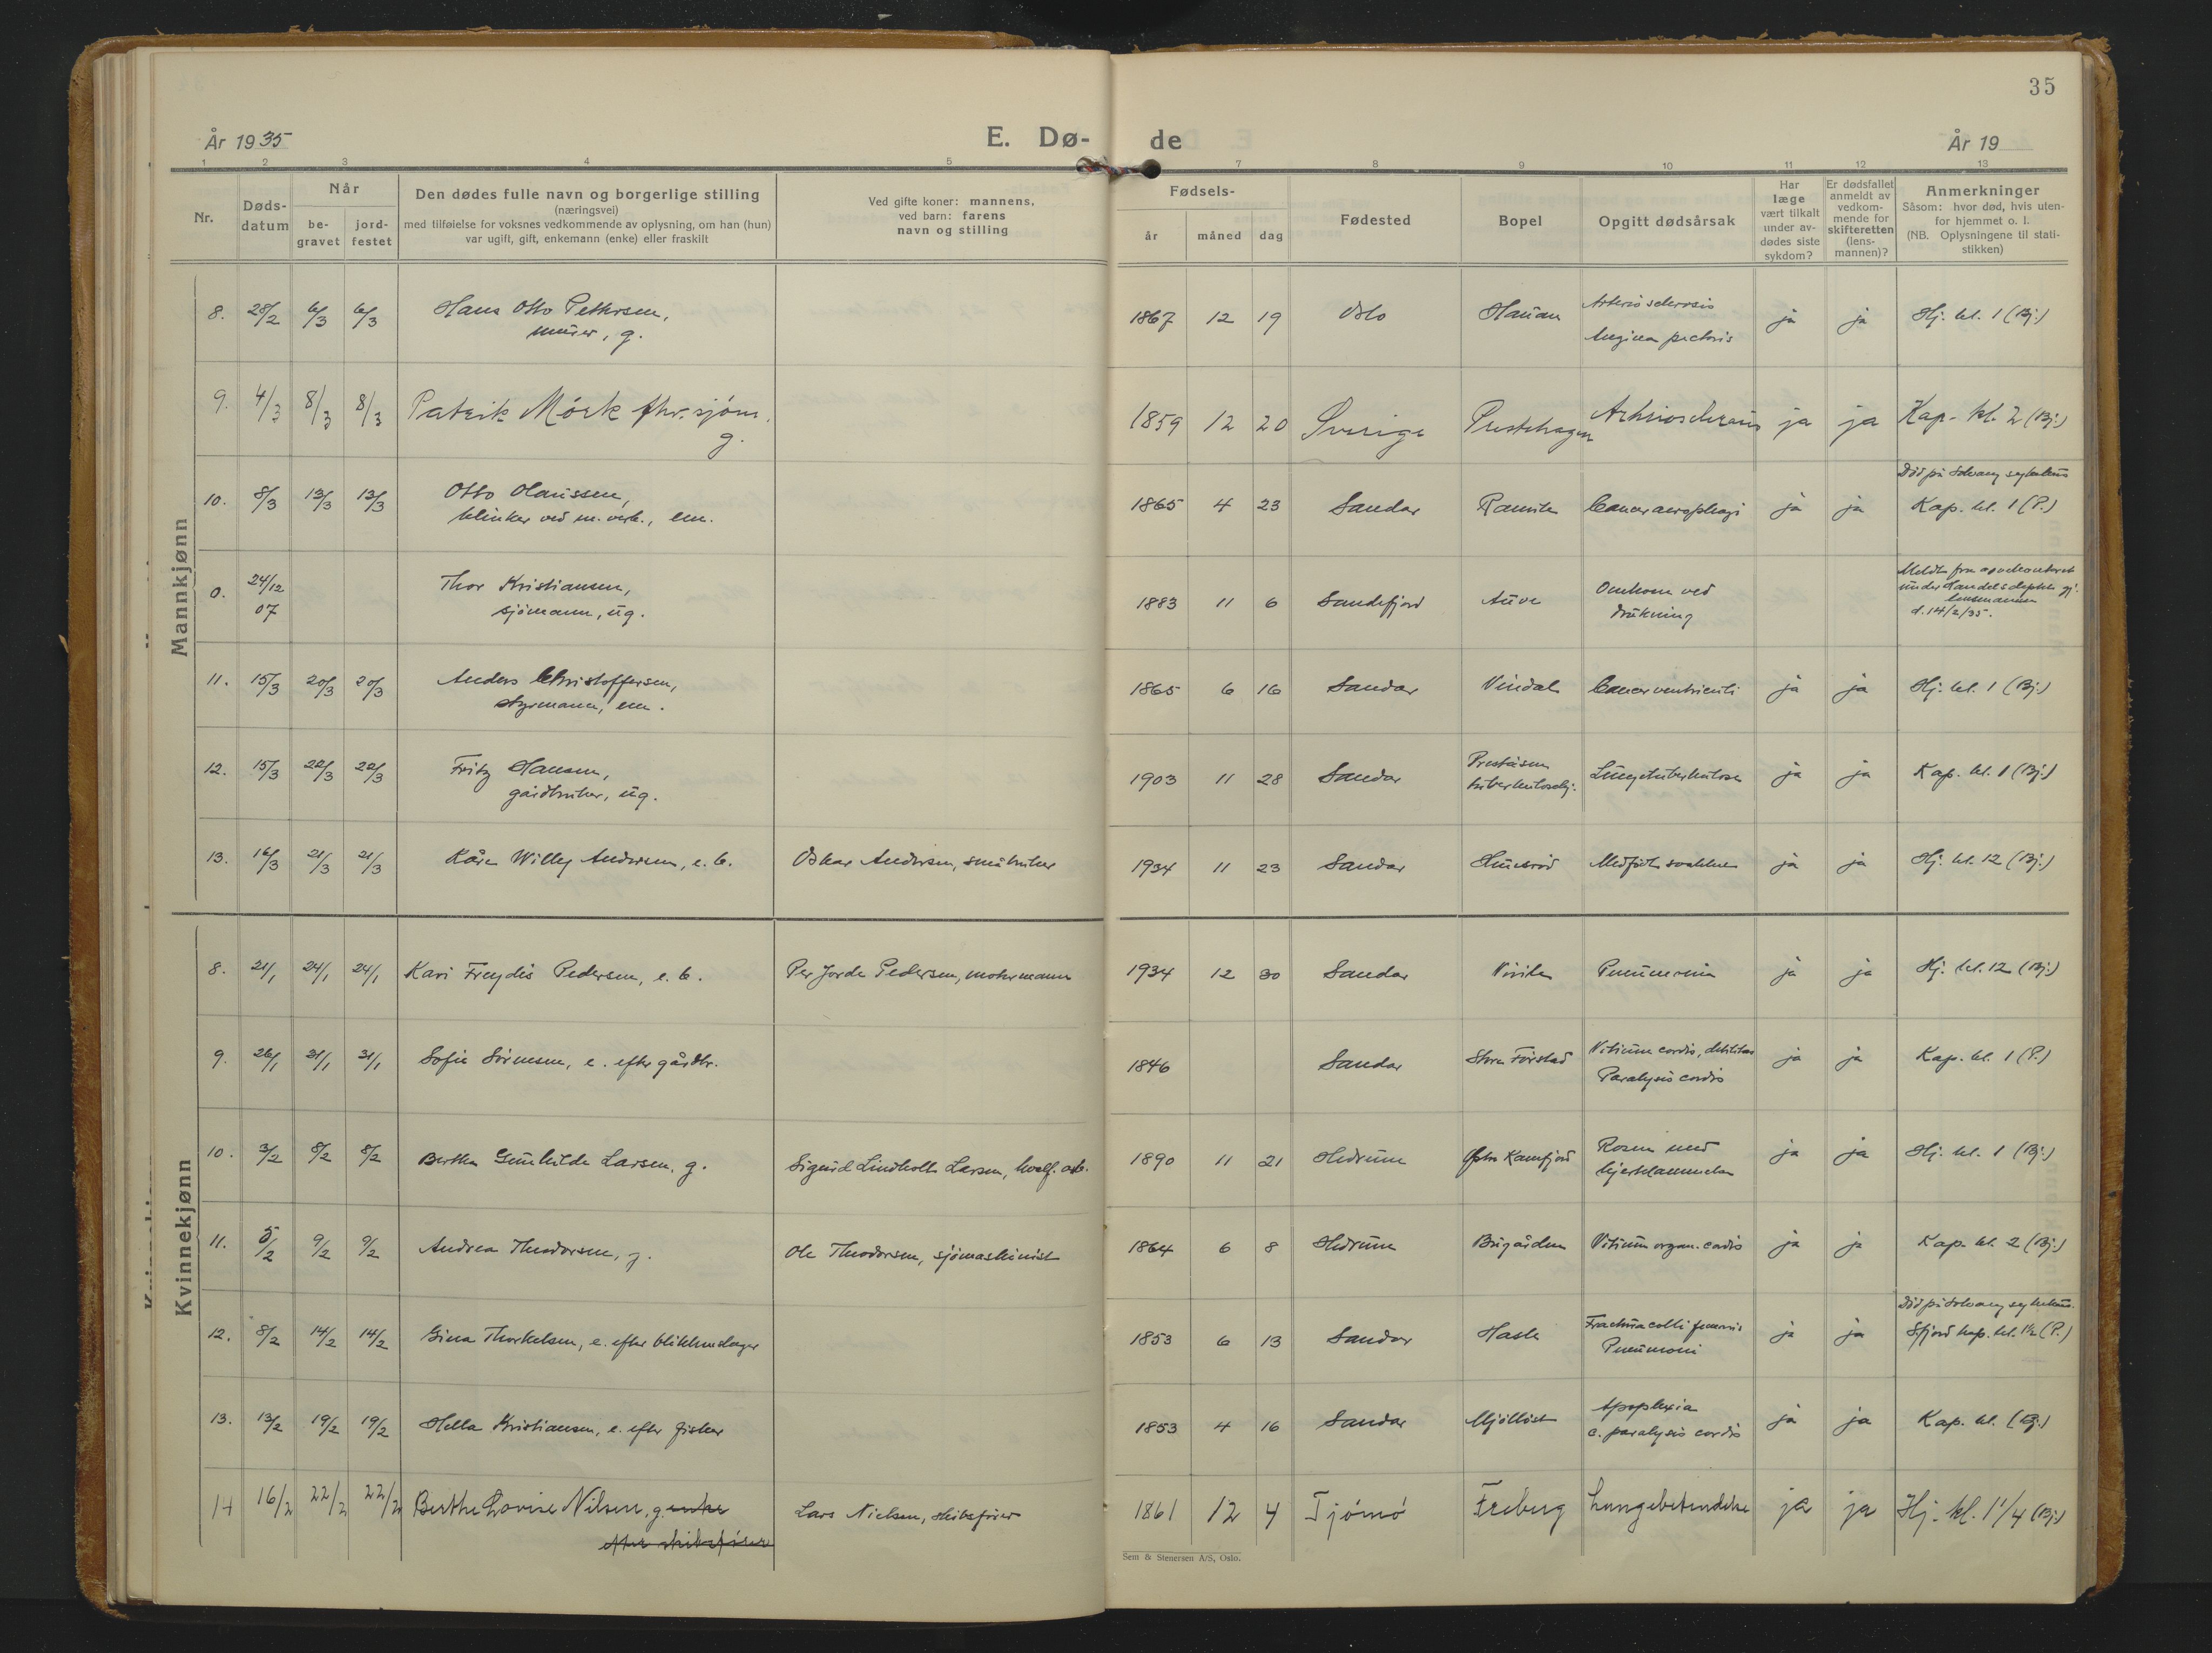 35
År 1935 E. Dø- de År 19
1 2 3 4 5 7 8 9 10 11 12 13
Nr.
Døds-
datum
Når
be-
gravet
jord-
festet
Den dødes fulle navn og borgerlige stilling
(næringsvei)
med tilføielse for voksnes vedkommende av oplysning, om han (hun)
var ugift, gift, enkemann (enke) eller fraskilt
Ved gifte koner: mannens,
ved barn: farens
navn og stilling
Fødsels-
år måned dag
Fødested
Bopel
Opgitt dødsårsak
Har
læge
vært tilkalt
under av-
dødes siste
sykdom?
Er dødsfallet
anmeldt av
vedkom-
mende for
skifteretten
(lens-
mannen)?
Anmerkninger
Såsom: hvor død, hvis uten-
for hjemmet o. l.
(NB. Oplysningene til stati-
stikken)
Mannkjønn
8. 28/2 6/3 6/3 Hans Otto Pettersen, 1867 12 19 Oslo Haugan Arteriosclerosis ja ja Hj. kl. 1 (Bj.)
murer, g. Angina pectoris
9. 4/3 8/3 8/3 Patrik Mörk fhv. sjøm. 1859 12 20 Sverige Prestehagen Arteriosclerosis ja ja Kap. kl. 2 (Bj.)
g.
Död på Solvang sykehus
10. 8/3 13/3 13/3 Otto Olaussen, 1865 4 23 Sandar Ranvik Cancer ja ja Kap. kl. 1 (P.)
klinker ved m. verk., em.
0. 24/12 07 Thor Kristiansen, 1883 11 6 Sandefjord Auve Omkom ved
sjömann, ug. drukning
lensmannen
d. 14/2/35.
11. 15/3 20/3 20/3 Anders Christoffersen, 1865 6 16 Sandar Vindal Cancer ventriculi ja ja Hj. kl. 1 (Bj.)
styrmann, em.
12. 15/3 22/3 22/3 Fritz Hansen, 1903 11 28 Sandar Preståsen Lungetuberkulose ja ja Kap. kl. 1 (Bj.)
gårdbruker, ug. tuberkulosehj.
13. 16/3 21/3 21/3 Kåre Willy Andersen, e. b. Oskar Andersen, småbruker 1934 11 23 Sandar Medfödt svakhet ja ja Hj. kl. 12 (Bj.)
Kvinnekjønn
8. 21/1 24/1 24/1 Kari Frøydis Pedersen, e. b. Per Jorde Pedersen, motormann 1934 12 30 Sandar Virik Pneumonia ja ja Hj. kl. 12 (Bj.)
9. 26/1 31/1 31/1 Sofie Sörensen, e. efter gårdbr. 1846 Sandar Store Förstad Vitium cordis, debilitas ja ja Kap. kl. 1 (P.)
Paralysis cordis
10. 3/2 8/2 8/2 Berthe Gunhilde Larsen, g. Sigurd Lindholt Larsen, hvalf. arb. 1890 11 21 Hedrum Östre Kamfjord Rosen med ja ja Hj. kl. 1 (Bj.)
hjertelammelse
11. 5/2 9/2 9/2 Andrea Theodorsen, g. Ole Theodorsen, sjömaskinist 1864 6 8 Hedrum Bugården Vitium organ. cordis ja ja Kap. kl. 2 (Bj.)
Död på Solvang sykehus.
12. 8/2 14/2 14/2 Gina Thorkelsen, e. efter blikkenslager 1853 6 13 Sandar Hasle Fractura colli femoris ja ja Sfjord kap. kl. 1½ (P.)
Pneumoni
13. 13/2 19/2 19/2 Hella Kristiansen, e. efter fisker 1853 4 16 Sandar Mjöllöst Apoplexia ja ja Kap. kl. (Bj.)
c. paralysis cordis
14 16/2 22/2 22/2 Berthe Lovise Nilsen, g. enke Lars Nielsen, skibsförer 1861 12 4 Tjömö Freberg Lungebetendelse ja ja Hj. kl. 1 1/4 (Bj.)
efter skibsfører
Sem & Stenersen A/S, Oslo.